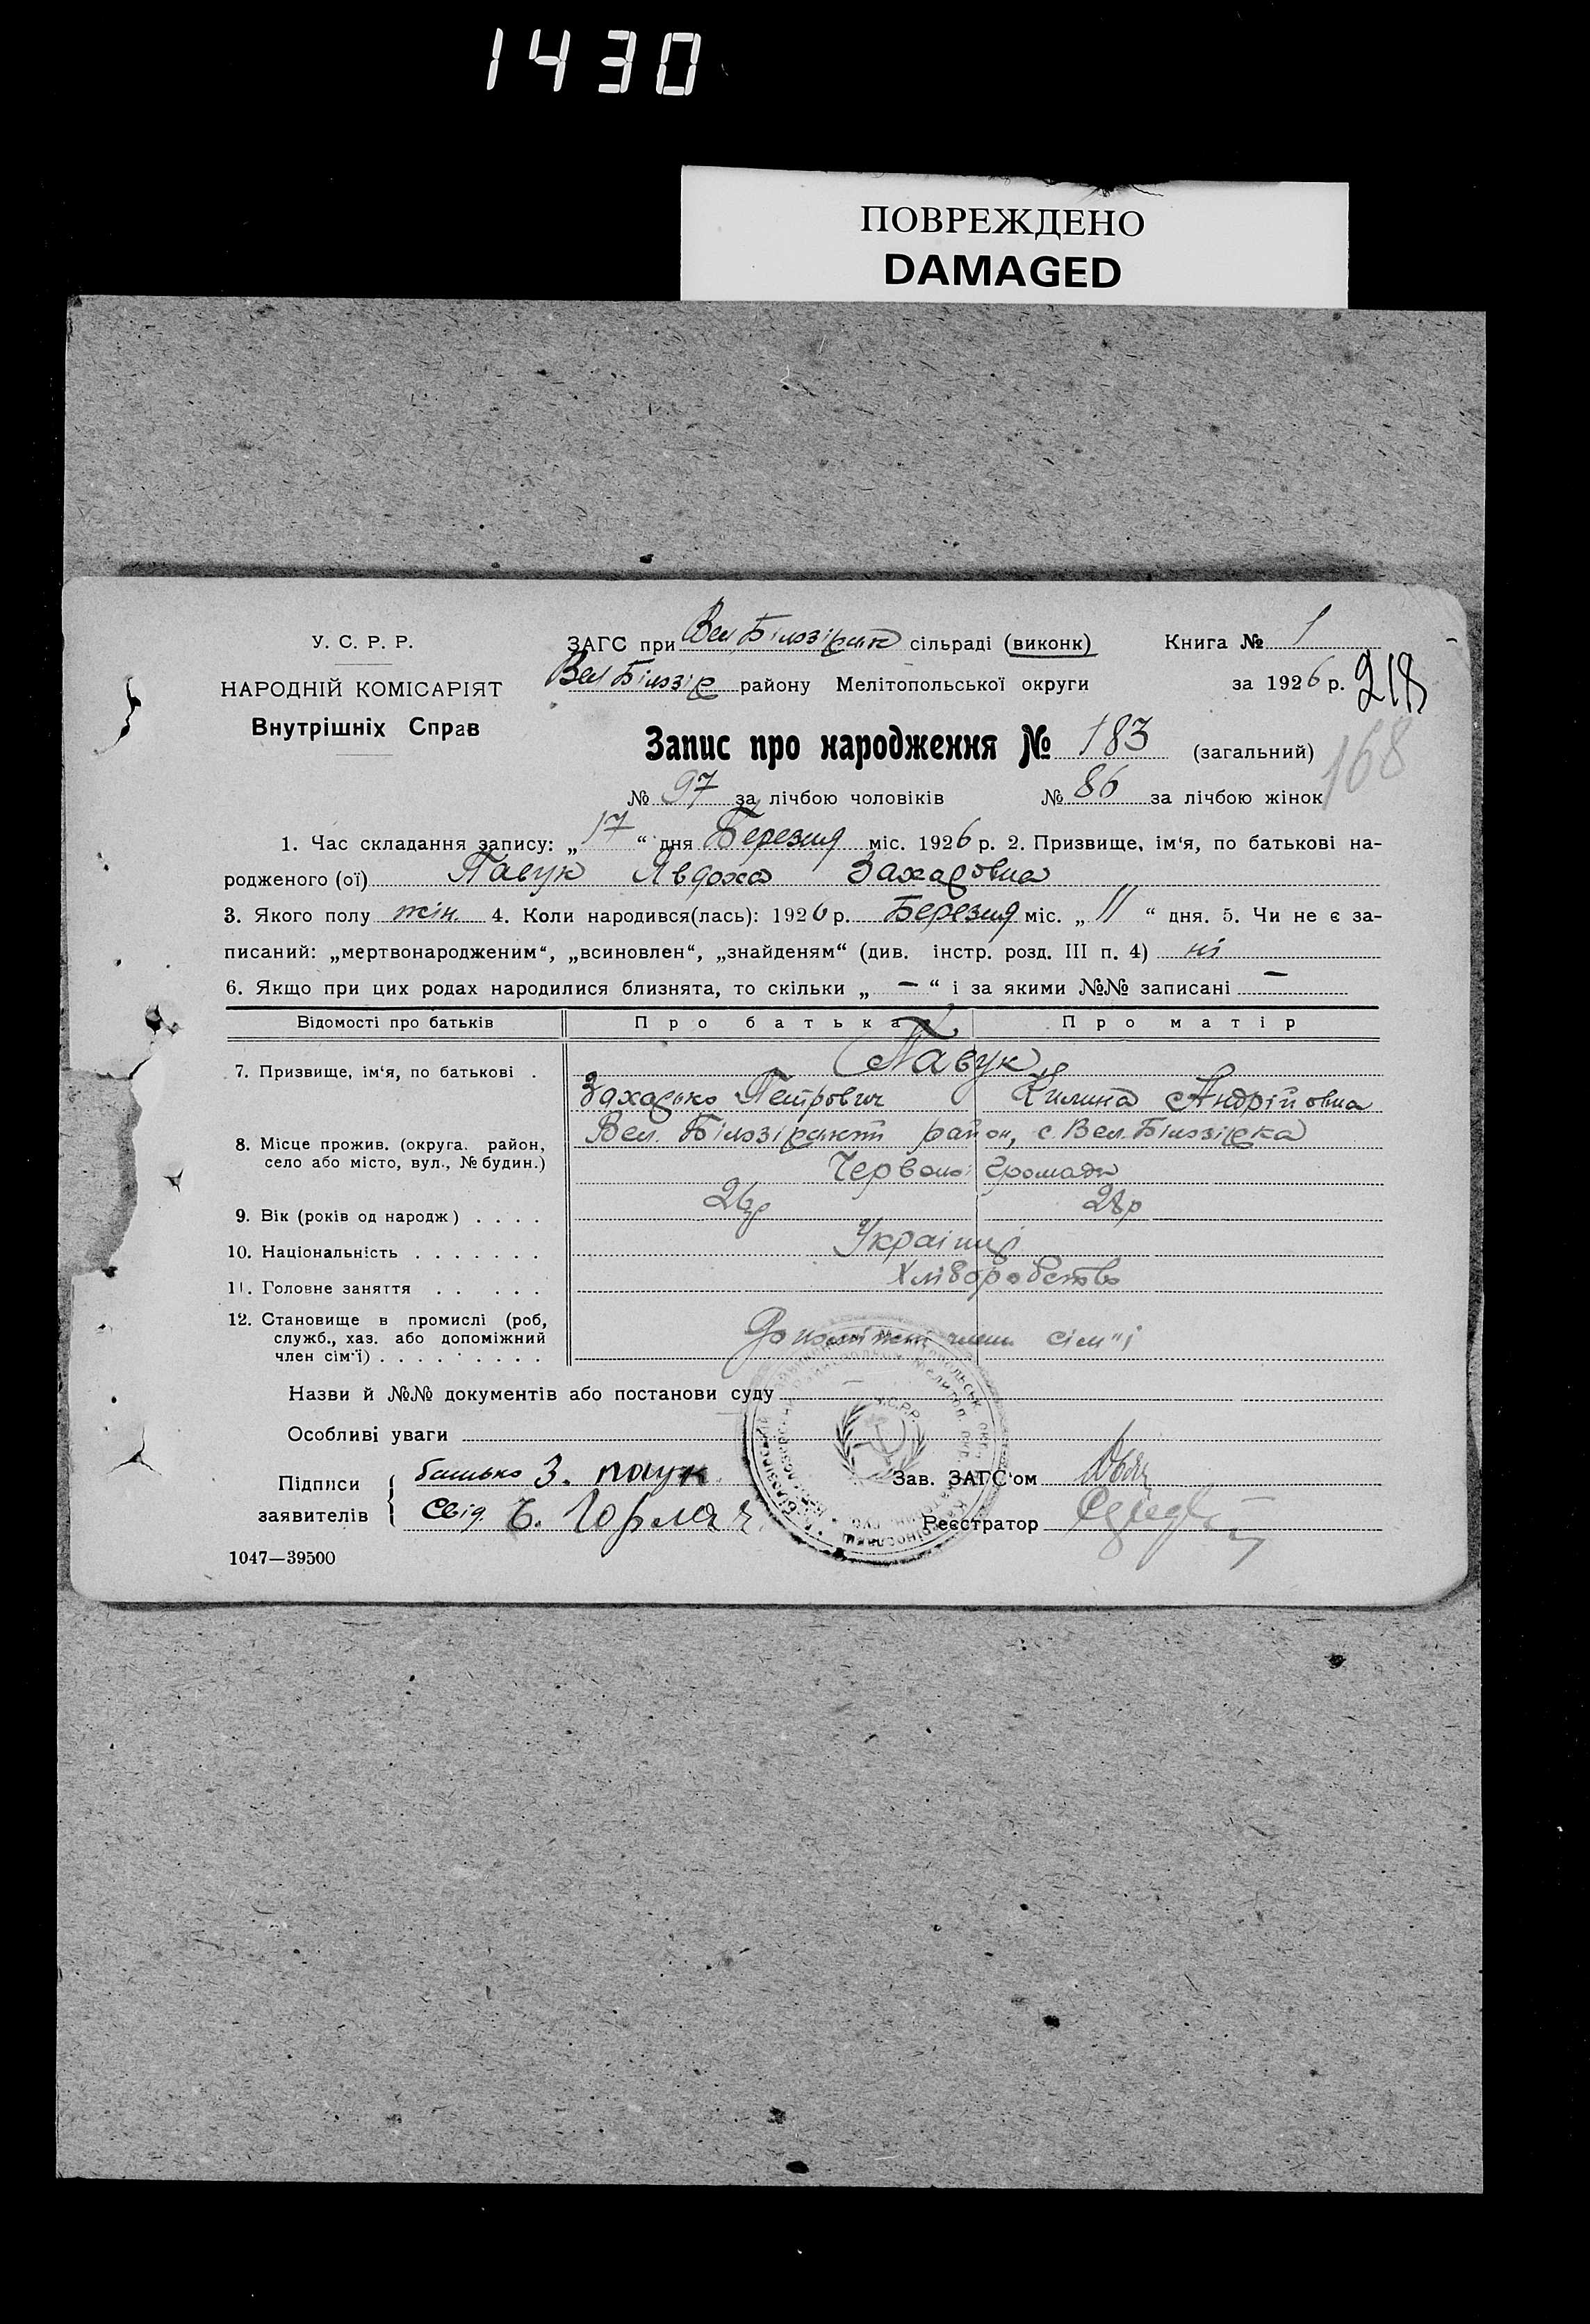 1430
ПОВРЕЖДЕНО
DAMAGED
У. С. Р. Р.
НАРОДНІЙ КОМІСАРІЯТ
Внутрішніх Справ
ЗАГС при Вел Білозірськ сільраді (виконк)
Книга № 1
Вел Білозір району Мелітопольської округи
за 1926 р. 218
Запис про народження № 183 (загальний) 168
№ 97 за лічбою чоловіків № 86 за лічбою жінок
1. Час складання запису: „17“ дня Березня міс. 1926 р. 2. Призвище, ім‘я, по батькові на-
родженого (ої) Павук Явдоха Захаровна
3. Якого полу жін. 4. Коли народився(лась): 1926 р. Березня міс. „11“ дня. 5. Чи не є за-
писаний: „мертвонародженим“, „всиновлен“, „знайденям“ (див. інстр. розд. III п. 4) ні
6. Якщо при цих родах народилися близнята, то скільки „ — “ і за якими №№ записані —
Відомості про батьків Про батька Про матір
7. Призвище, ім‘я, по батькові . Павук
Захарько Петрович Килина Андрійовна
8. Місце прожив. (округа. район, Вел. Білозірський район, с. Вел. Білозірка
село або місто, вул., № будин.) Червоної Громади
9. Вік (років од народж) . . . . 26р 28р
10. Національність . . . . . . . Українці
11. Головне заняття . . . . . Хліборобство
12. Становище в промислі (роб,
служб., хаз. або допоміжний
член сім‘ї) . . . . . . . . . Допоміжні члени сім"ї
Назви й №№ документів або постанови суду
Особливі уваги
У.С.Р.Р.
Підписи
заявителів
батько З. паук
свід
Зав. ЗАГС‘ом
Реєстратор
1047—39500